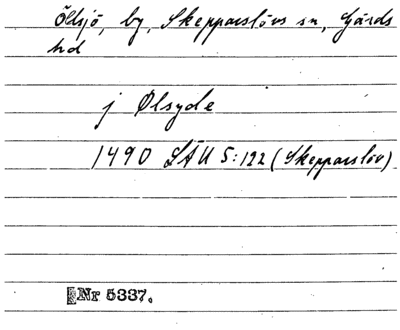 Öllsjö, by, Skepparslövs sn, Gärds
hd
j Ølsyde
1490 LÄU 5:122 (Skepparslöv)
Nr 5337.